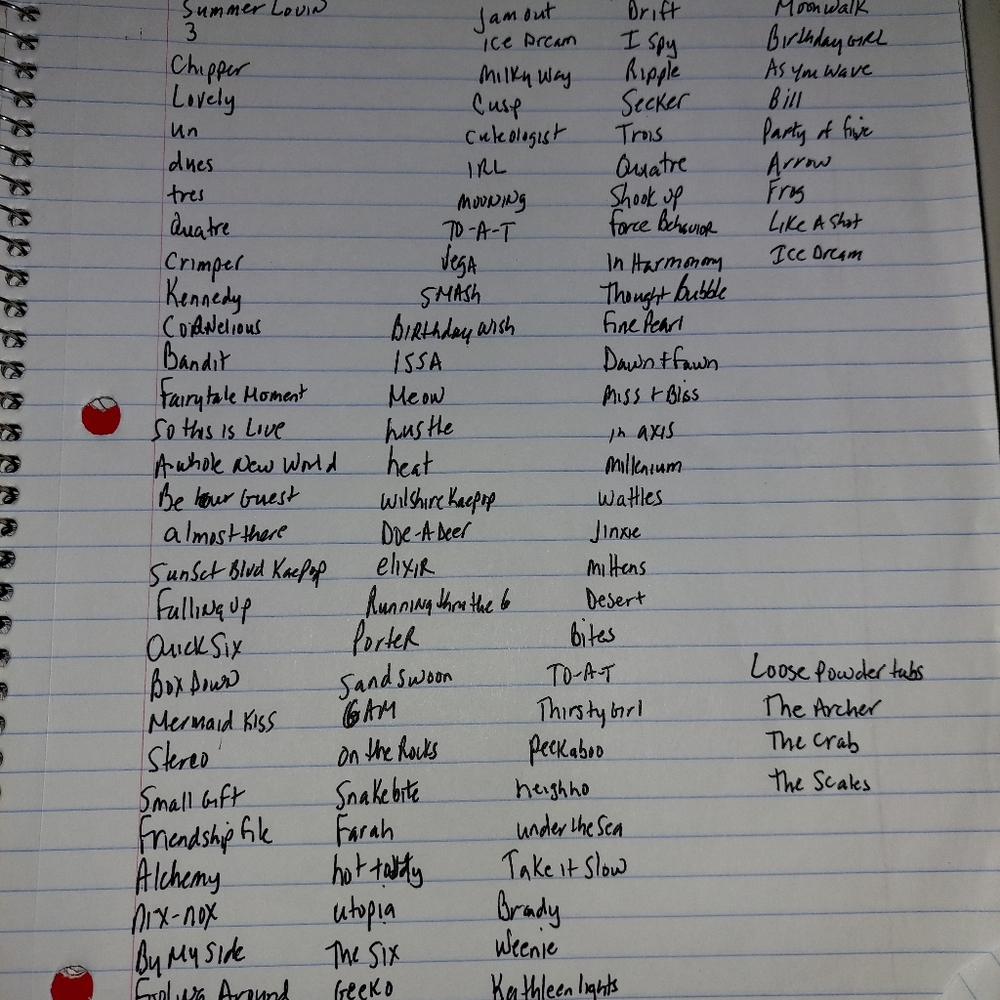 Summer Lovin Jam out Drift Moonwalk
3 Ice Dream I Spy Birthday Girl
Chipper Milky Way Ripple As You Wave
Lovely Cusp Seeker Bill
un cuteologist Trois Party of five
dues IRL Quatre Arrow
tres mooning Shook up Frog
Quatre TO-A-T Force Behavior Like A Shot
Crimper Vega In Harmony Ice Dream
Kennedy SMASH Thought Bubble
Cornelious Birthday wish Fine Pearl
Bandit ISSA Dawn + Fawn
Fairytale Moment Meow Miss + Bliss
So this is Love hustle in axis
A whole New World heat Millenium
Be our Guest Wilshire Kaepop Wattles
almost there Doe-A Deer Jinxie
Sunset Blvd Kaepop elixir Mittens
Falling Up Running thru the 6 Desert
Quick Six Porter Bites
Box Down Sand swoon TO-A-T Loose Powder tabs
Mermaid Kiss GAM Thirsty Girl The Archer
Stereo On the Rocks Peekaboo The Crab
Small Gift Snakebite heighho The Scales
Friendship file Farah under the Sea
Alchemy hot toddy Take it Slow
nix-nox utopia Brady
By My Side The Six Weenie
Fooling Around Geeko Kathleenlights